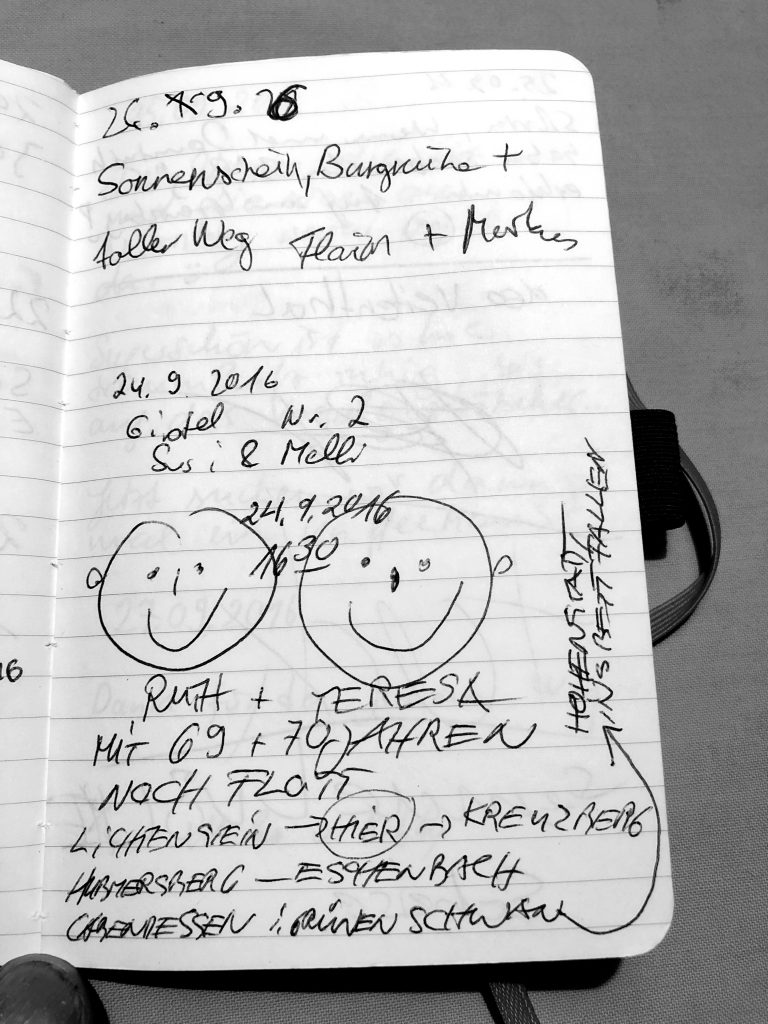 Sonnenschein, Burgruine +
toller Weg Flaim + Markus
24.9.2016
Gipfel Nr. 2
Susi & Melli
24.9.2016
16 30
RUTH + TERESA
MIT 69 + 70 JAHREN
NOCH FLOTT
LICHTENSTEIN → HIER → KREUZBERG
HUBMERSBERG — ESCHENBACH
ABENDESSEN i. GRÜNEN SCHWAN
HOHENSTADT
INS BETT FALLEN